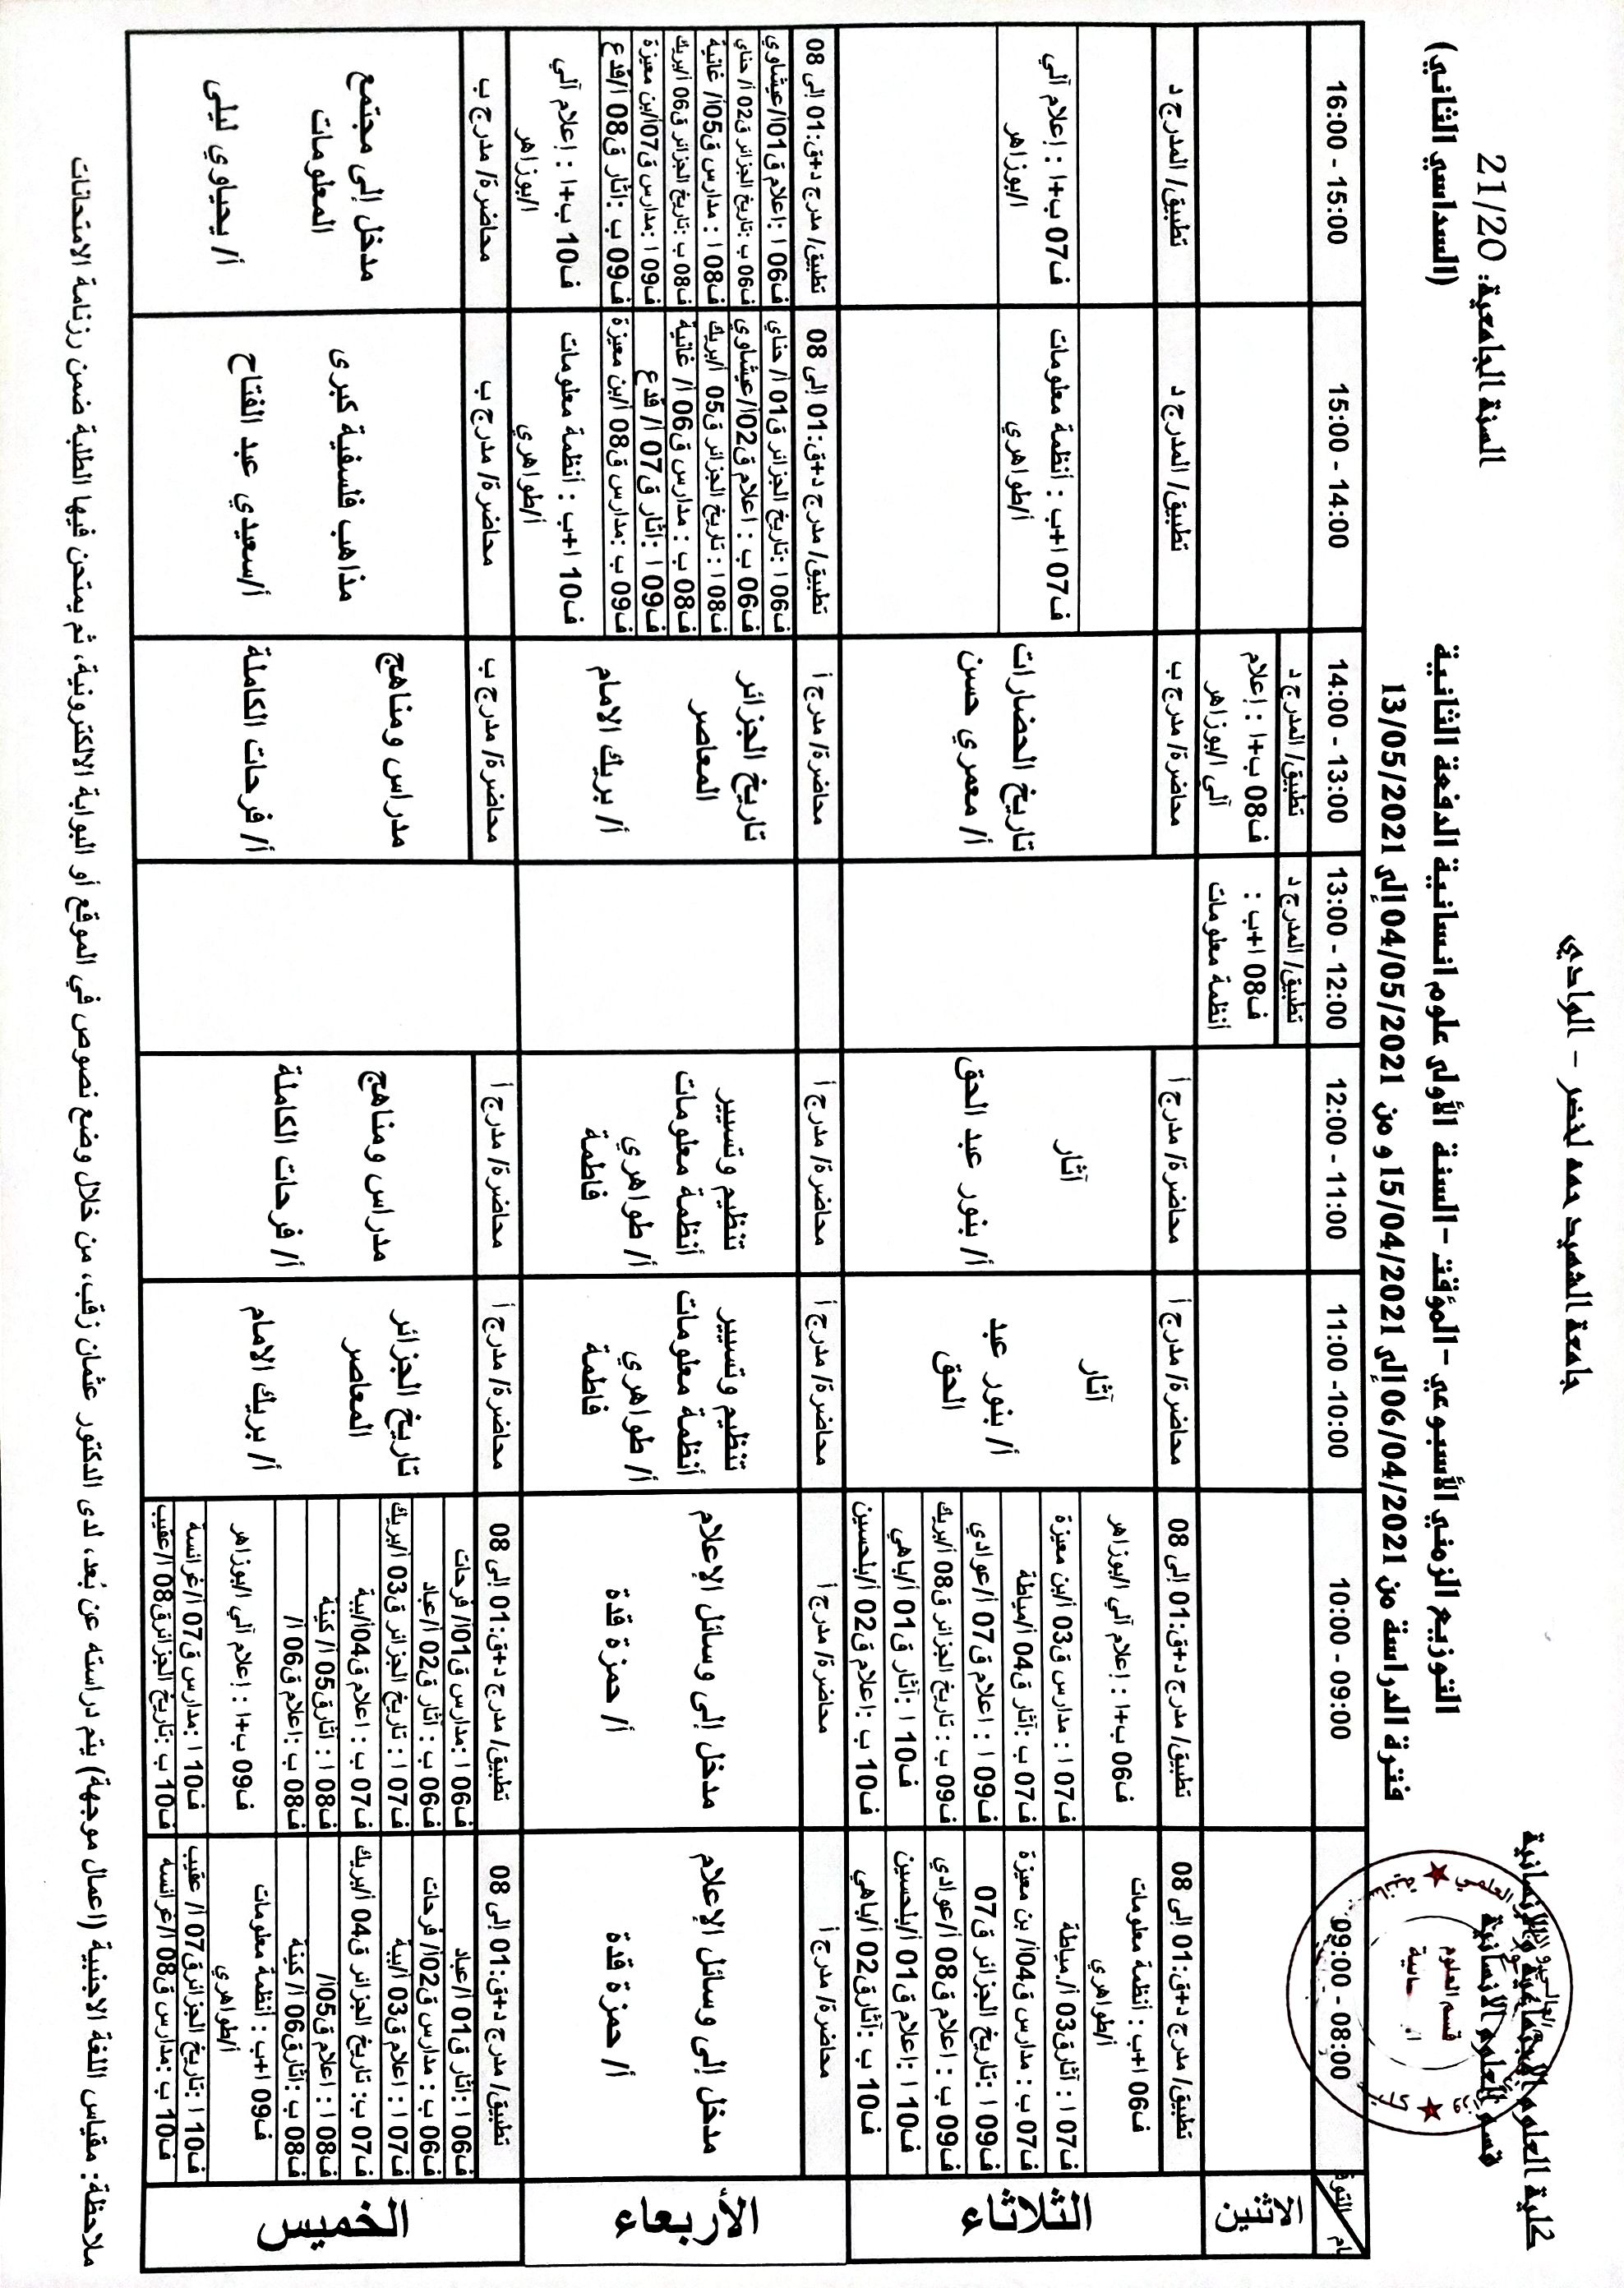 جامعة الشهيد حمه لخضر - الوادي
كلية العلوم الاجتماعية والإنسانية
قسم العلوم الانسانية
السنة الجامعية: 21/20
التوزيع الزمني الأسبوعي - المؤقت - السنة الأولى علوم انسانية الدفعة الثانية (السداسي الثاني)
فترة الدراسة من 06/04/2021 إلى 15/04/2021 و من 04/05/2021 إلى 13/05/2021
09:00 - 08:00
10:00 - 09:00
11:00 -10:00
12:00 - 11:00
13:00 - 12:00
14:00 - 13:00
15:00 - 14:00
16:00 - 15:00
الاثنين
تطبيق/ المدرج د
ف08 ا+ب :
أنظمة معلومات
تطبيق/ المدرج د
ف08 ب+ا : إعلام
آلي ا/بوزاهر
الثلاثاء
تطبيق/ مدرج د+ق:01 إلى 08
ف06 ا+ب : أنظمة معلومات
أ/طواهري
ف07 ا : آثارق03 أ/.مياطة
ف07 ب : مدارس ق04أ/ بن معيزة
ف09 ا :تاريخ الجزائر ق07
ف09 ب : اعلام ق08 أ/عوادي
ف10 ا :اعلام ق01 أ/بلحسين
ف10 ب :آثارق02 أ/باهي
تطبيق/ مدرج د+ق:01 إلى 08
ف06 ب+ا : إعلام آلي ا/بوزاهر
ف07 ا : مدارس ق03 أ/بن معيزة
ف07 ب :آثار ق04 أ/مياطة
ف09 ا : اعلام ق07 أ/عوادي
ف09 ب : تاريخ الجزائر ق08 أ/بريك
ف10 ا :آثار ق01 أ/باهي
ف10 ب :اعلام ق02 أ/بلحسين
محاضرة/ مدرج أ
آثار
أ/ بنور عبد
الحق
محاضرة/ مدرج أ
آثار
أ/ بنور عبد الحق
محاضرة/ مدرج ب
تاريخ الحضارات
أ/ معمري حسن
تطبيق/ المدرج د
ف07 ا+ب : أنظمة معلومات
أ/طواهري
تطبيق/ المدرج د
ف07 ب+ا : إعلام آلي
ا/بوزاهر
الأربعاء
محاضرة/ مدرج أ
مدخل إلى وسائل الإعلام
أ/ حمزة قدة
محاضرة/ مدرج أ
مدخل إلى وسائل الإعلام
أ/ حمزة قدة
محاضرة/ مدرج أ
تنظيم وتسيير
أنظمة معلومات
أ/ طواهري
فاطمة
محاضرة/ مدرج أ
تنظيم وتسيير
أنظمة معلومات
أ/ طواهري
فاطمة
محاضرة/ مدرج أ
تاريخ الجزائر
المعاصر
أ/ بريك الامام
تطبيق/ مدرج د+ق:01 إلى 08
ف06 ا :تاريخ الجزائر ق01 أ/ حناي
ف06 ب : اعلام ق02أ/عيشاوي
ف08 ا : تاريخ الجزائر ق05 أ/بريك
ف08 ب : مدارس ق06 أ/ غانية
ف09 ا :آثار ق07 أ/ قدع
ف09 ب :مدارس ق08 أ/بن معيزة
ف10 ا+ب : أنظمة معلومات
أ/طواهري
تطبيق/ مدرج د+ق:01 إلى 08
ف06 ا :اعلام ق01أ/عيشاوي
ف06 ب :تاريخ الجزائر ق02 أ/ حناي
ف08 ا : مدارس ق05أ/ غانية
ف08 ب :تاريخ الجزائر ق06 أ/بريك
ف09 ا :مدارس ق07أ/بن معيزة
ف09 ب :آثار ق08 أ/قدع
ف10 ب+ا : إعلام آلي
ا/بوزاهر
الخميس
تطبيق/ مدرج د+ق:01 إلى 08
ف06 ا :آثار ق01 أ/عباد
ف06 ب : مدارس ق02أ/ فرحات
ف07 ا : اعلام ق03 أ/بية
ف07 ب: تاريخ الجزائر ق04 أ/بريك
ف08 ا : اعلام ق05أ/
ف08 ب :آثارق06 أ/ كينة
ف09 ا+ب : أنظمة معلومات
أ/طواهري
ف10 ا :تاريخ الجزائرق07 أ/ عقيب
ف10 ب :مدارس ق08 أ/غرانسة
تطبيق/ مدرج د+ق:01 إلى 08
ف06 ا :مدارس ق01أ/ فرحات
ف06 ب : آثار ق02 أ/عباد
ف07 ا : تاريخ الجزائر ق03 أ/بريك
ف07 ب : اعلام ق04أ/بية
ف08 ا : آثارق05 أ/ كينة
ف08 ب :اعلام ق06 أ/
ف09 ب+ا : إعلام آلي ا/بوزاهر
ف10 ا :مدارس ق07 أ/غرانسة
ف10 ب :تاريخ الجزائرق08 أ/عقيب
محاضرة/ مدرج أ
تاريخ الجزائر
المعاصر
أ/ بريك الامام
محاضرة/ مدرج أ
مدراس ومناهج
أ/ فرحات الكاملة
محاضرة/ مدرج ب
مدراس ومناهج
أ/ فرحات الكاملة
محاضرة/ مدرج ب
مذاهب فلسفية كبرى
أ/سعيدي عبد الفتاح
محاضرة/ مدرج ب
مدخل إلى مجتمع
المعلومات
أ/ يحياوي ليلى
ملاحظة: مقياس اللغة الاجنبية (اعمال موجهة) يتم دراسته عن بُعد، لدى الدكتور عثمان زقب، من خلال وضع نصوص في الموقع أو البوابة الالكترونية، ثم يمتحن فيها الطلبة ضمن رزنامة الامتحانات
قسم العلوم